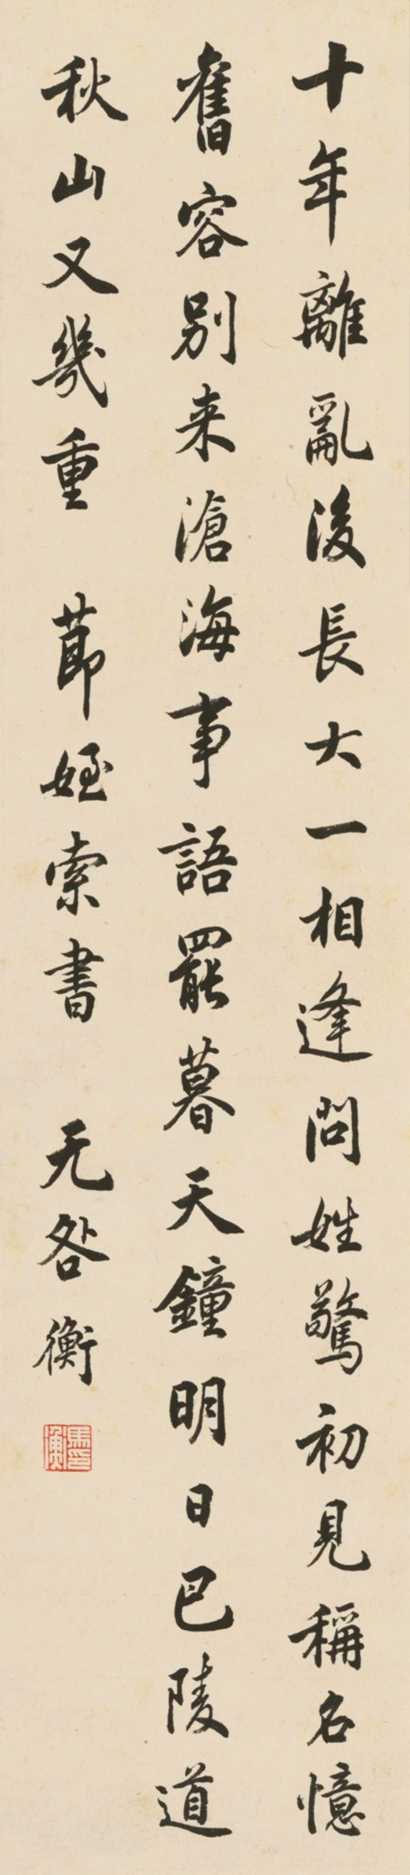 十年離亂後長大一相逢問姓驚初見稱名憶
舊容別来滄海事語罷暮天鐘明日巴陵道
秋山又幾重　莭姪索書　无咎衡
馬衡